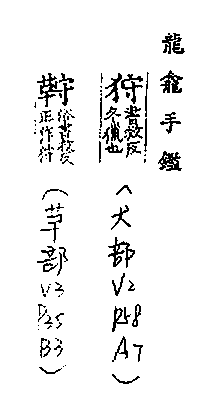 龍龕手鑑
狩 書救反
冬獵也
(犬部V2 P58 A7)
俗書救反
正作狩
(草部V3 P35 B3)